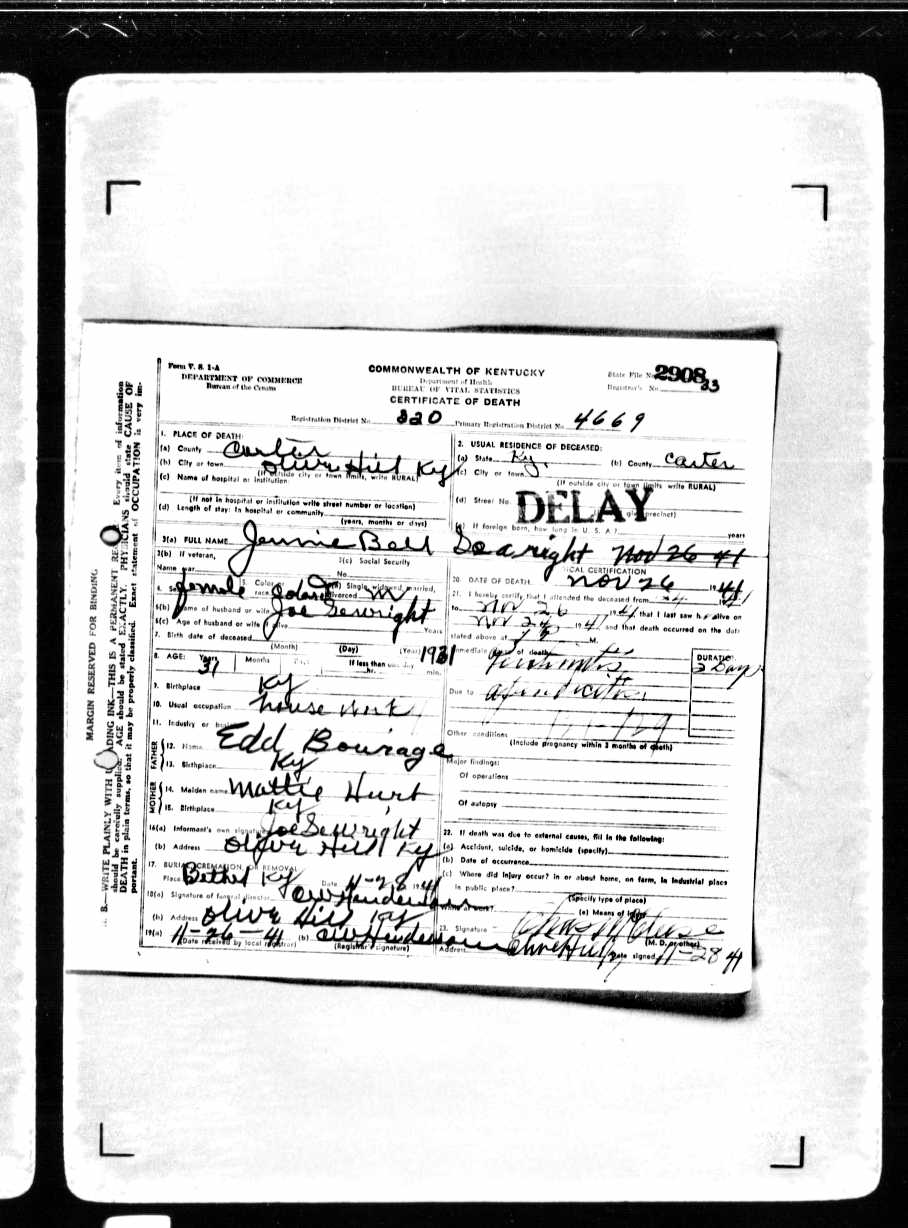 Form V. S. 1-A
DEPARTMENT OF COMMERCE
Bureau of the Census
COMMONWEALTH OF KENTUCKY
Department of Health
BUREAU OF VITAL STATISTICS
CERTIFICATE OF DEATH
State File No. 29083
Registrar's No. 33
Registration District No. 220
Primary Registration District No. 4669
1. PLACE OF DEATH:
(a) County Carter
(b) City or town Olive Hill Ky
(If outside city or town limits, write RURAL)
(c) Name of hospital or institution:
(If not in hospital or institution write street number or location)
(d) Length of stay: In hospital or community
(years, months or days)
2. USUAL RESIDENCE OF DECEASED:
(a) State Ky. (b) County Carter
(c) City or town
(If outside city or town limits write RURAL)
(d) Street No.
DELAY
(e) If foreign born, how long in U. S. A.? years
3(a) FULL NAME Jennie Bell Seawright Nov 26 41
3(b) If veteran,
Name war
3(c) Social Security
No.
4. Sex female 5. Color or race 6(a) Single, widowed, married, divorced M
6(b) Name of husband or wife Joe Sewright
6(c) Age of husband or wife if alive Years
7. Birth date of deceased
(Month) (Day) (Year)
8. AGE: Years 31 Months Days If less than one day
hr. min.
9. Birthplace Ky
10. Usual occupation house work
11. Industry or business
FATHER
12. Name Edd Bowrage
13. Birthplace Ky
MOTHER
14. Maiden name Mattie Hurt
15. Birthplace Ky
16(a) Informant's own signature Joe Sewright
(b) Address Olive Hill Ky
17. BURIAL, CREMATION, OR REMOVAL
Place Bethel Ky Date 11-28 1941
18(a) Signature of funeral director CW Henderson
(b) Address Olive Hill Ky
19(a) 11-26-41 (b) CW Henderson
(Date received by local registrar) (Registrar's signature)
MEDICAL CERTIFICATION
20. DATE OF DEATH Nov 26 1941
21. I hereby certify that I attended the deceased from
to Nov 26 1941 that I last saw h alive on
Nov 1941 and that death occurred on the date
stated above at M.
Immediate cause of death
DURATION
2 Days
Due to
Other conditions
(Include pregnancy within 3 months of death)
Major findings:
Of operations
Of autopsy
22. If death was due to external causes, fill in the following:
(a) Accident, suicide, or homicide (specify)
(b) Date of occurrence
(c) Where did injury occur? in or about home, on farm, in industrial place
in public place?
(Specify type of place)
While at work? (e) Means of injury
23. Signature
(M. D. or other)
Address Olive Hill Ky Date signed 11-28 41
MARGIN RESERVED FOR BINDING
B.—WRITE PLAINLY WITH UNFADING INK—THIS IS A PERMANENT RECORD. Every item of information
should be carefully supplied. AGE should be stated EXACTLY. PHYSICIANS should state CAUSE OF
DEATH in plain terms, so that it may be properly classified. Exact statement of OCCUPATION is very im-
portant.